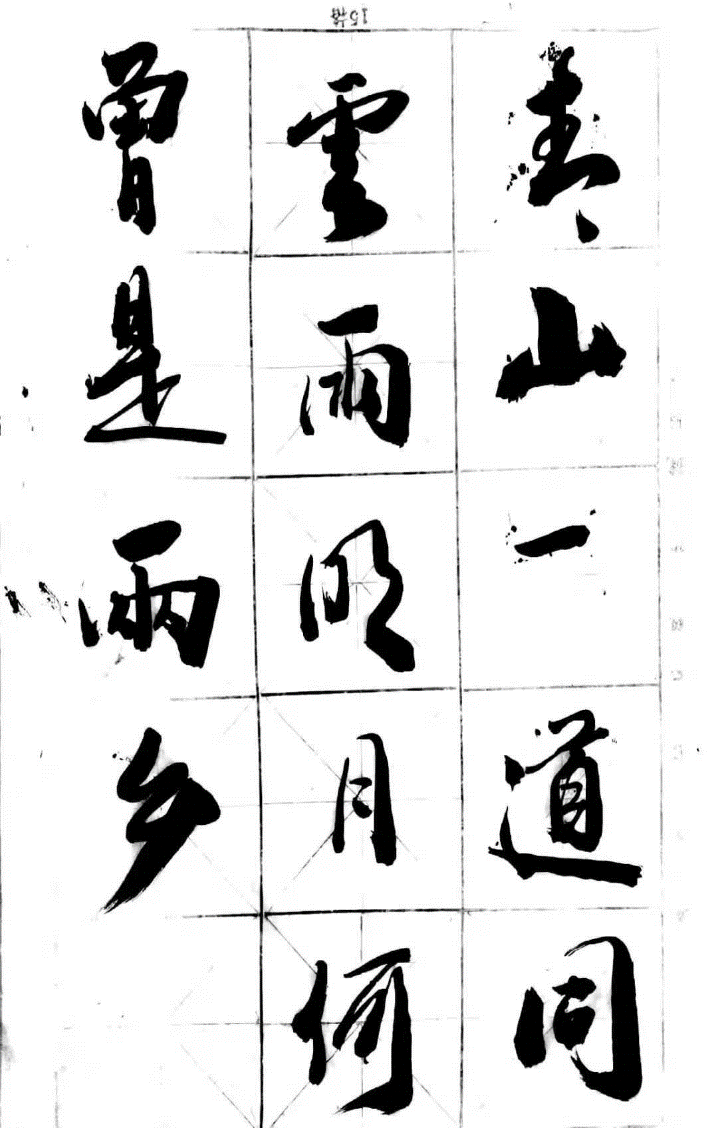 15格
青山一道同
雲雨明月何
曾是兩乡